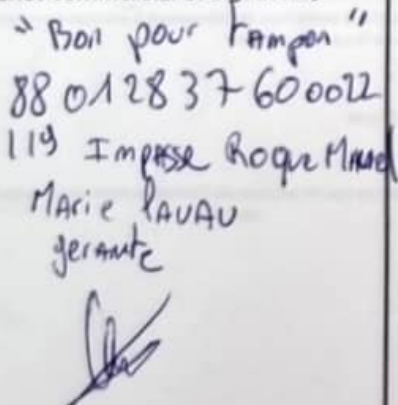 "Bon pour tampon"
88012837600022
119 Impasse Roque
Marie LAVAU
gerante